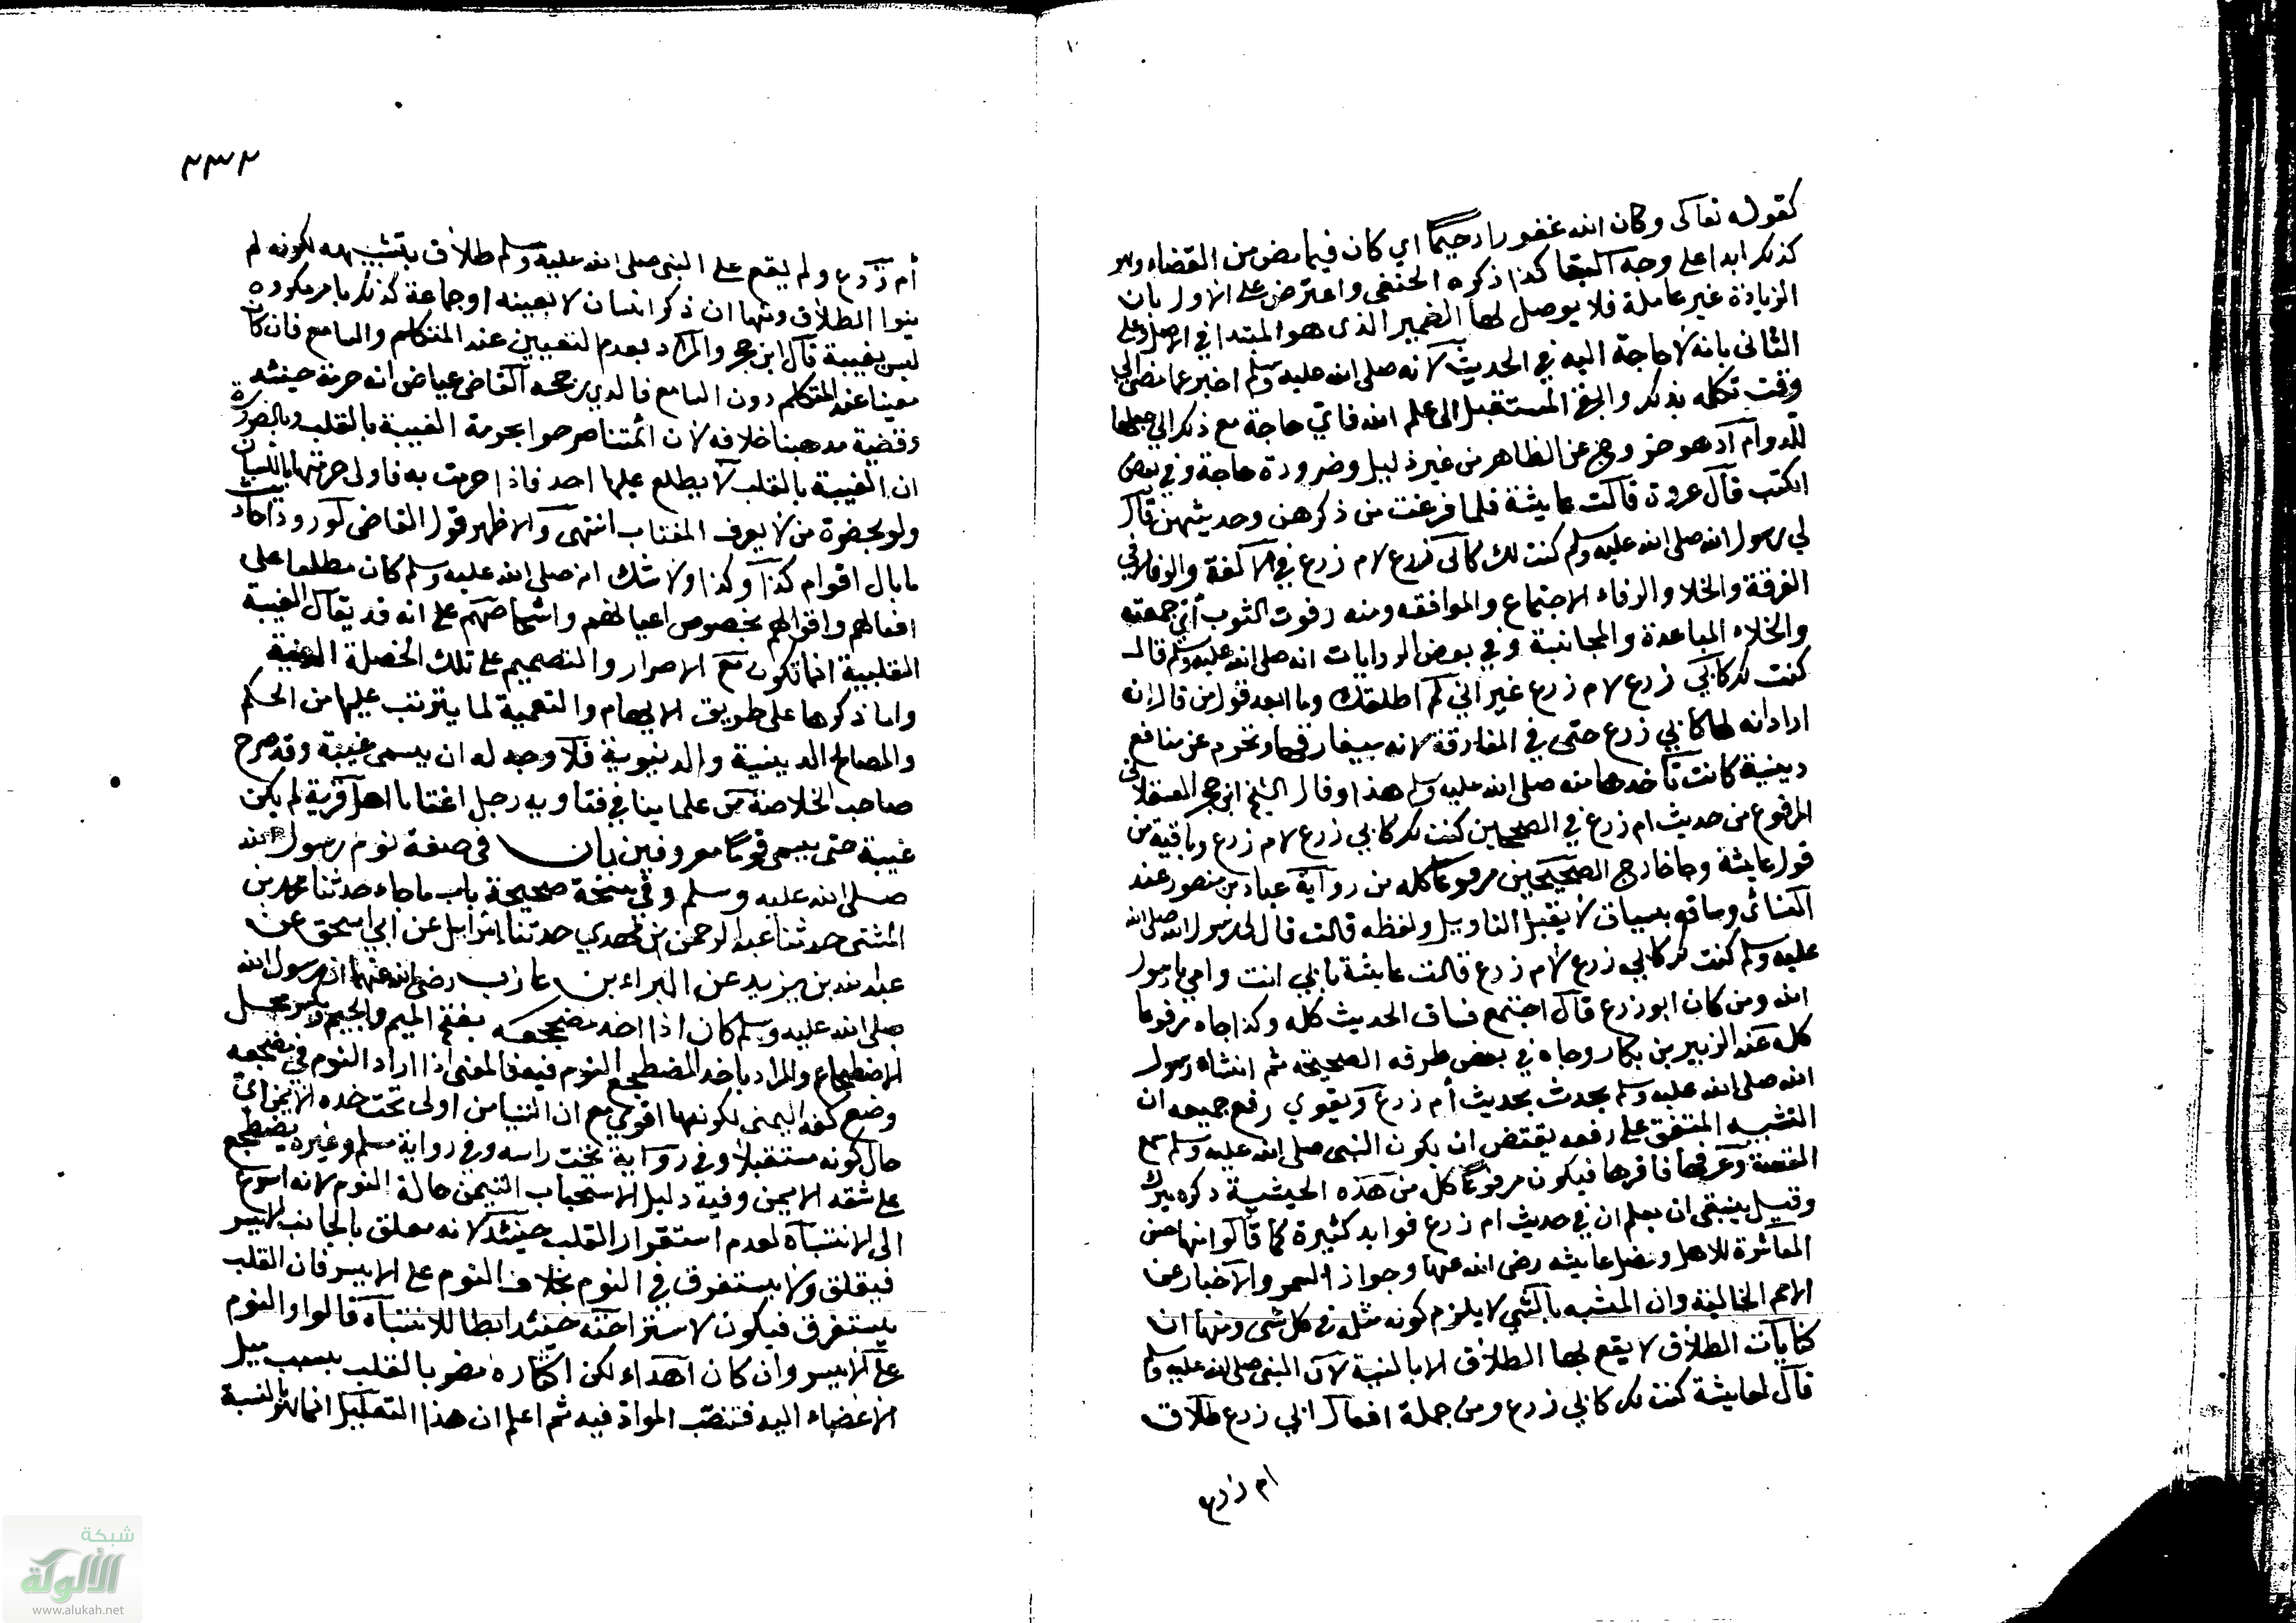 كقوله تعالى وكان الله غفورا رحيما اي كان فيما مضى من القضاء وهو
كذلك ابدا على وجه البقا كذا ذكره الحنفي واعترض على الاول بان
الزيادة غير عاملة فلا يوصل لها الضمير الذى هو المبتدا في الاصل وعلى
الثانى بانه لا حاجة اليه في الحديث لانه صلى الله عليه وسلم اخبر عما مضى الى
وقت تكلمه بذلك والبقى المستقبل الى علم الله فاي حاجة مع ذلك الي جعلها
للدوام اذ هو خروج عن الظاهر من غير دليل وضرورة حاجة وفي بعض
الكتب قال عروة قالت عايشة فلما فرغت من ذكرهن وحديثهن قال
لي رسول الله صلى الله عليه وسلم كنت لك كابى زرع لام زرع في الالفة والوفا لا في
الفرقة والخلا والرفاء الاجتماع والموافقه ومنه رفوت الثوب اي جمعته
والخلاء المباعدة والمجانبة وفي بعض الروايات انه صلى الله عليه وسلم قال
كنت لك كابي زرع لام زرع غير اني لم اطلقك وما ابعد قول من قال انه
اراد انه لها كابي زرع حتى في المفارقة لانه سيفارقها وتحرم عن منافع
دينية كانت تأخدها منه صلى الله عليه وسلم هذا وقال الشيخ ابن حجر العسقلاني
المرفوع من حديث ام زرع في الصحيحين كنت لك كابي زرع لام زرع وباقية من
قول عايشة وجا خارج الصحيحين مرفوعا كله من رواية عباد بن منصور عند
النسائى وساقه بسياق لا يقبل التاويل ولفظه قالت قال لي رسول الله صلى الله
عليه وسلم كنت لك كابي زرع لام زرع قالت عايشة بابي انت وامي يا رسول
الله ومن كان ابو زرع قال اجتمع فساق الحديث كله وكذا جاء مرفوعا
كله عند الزبير بن بكار وجاء في بعض طرقه الصحيحة ثم انشاء رسول
الله صلى الله عليه وسلم يحدث بحديث أم زرع ويقوي رفع جميعه ان
التشبيه المتفق على رفعه يقتضي ان يكون النبى صلى الله عليه وسلم سمع
القصة وعرفها فاقرها فيكون مرفوعا كله من هذه الحيثية ذكره ميرك
وقيل ينبغى ان يعلم ان في حديث ام زرع فوايد كثيرة كما قالوا منها حسن
المعاشرة للاهل وفضل عايشه رضى الله عنها وجواز السمر والاخبار عن
الامم الخالية وان المشبه بالشي لا يلزم كونه مثله في كل شى ومنها ان
كنايات الطلاق لا يقع بها الطلاق الا بالنية لان النبى صلى الله عليه وسلم
قال لعايشة كنت لك كابي زرع ومن جملة افعال ابي زرع طلاق
ام زرع
٢٣٢
أم زرع ولم يقع على النبى صلى الله عليه وسلم طلاق بتشبيهه لكونه لم
ينوا الطلاق ومنها ان ذكر انسان لا بعينه او جماعة كذلك بامر مكروه
ليس بغيبة قال ابن حجر والمراد بعدم التعيين عند المتكلم والسامع فان كان
معينا عند المتكلم دون السامع فالذي رجحه القاضى عياض انه حرمة حينئذ
وقضية مدهبنا خلافه لان ائمتنا صرحوا بحرمة الغيبة بالقلب وبالضرورة
ان الغيبة بالقلب لا يطلع عليها احد فاذا حرمت به فاولى حرمتها باللسان
ولو بحضرة من لا يعرف المغتاب انتهى والاظهر قول القاضى لورود احاديث
ما بال اقوام كذا وكذا ولا شك انه صلى الله عليه وسلم كان مطلعا على
افعالهم واقوالهم بخصوص اعيانهم واشخاصهم على انه قد يقال الغيبة
القلبية انما تكون مع الاصرار والتصميم على تلك الخصلة الدنية
واما ذكرها على طريق الابهام والتعمية لما يترتب عليها من الحكم
والمصالح الدينية والدنيوية فلا وجه له ان يسمى غيبة وقد صرح
صاحب الخلاصة من علماينا في فتاويه رجل اغتابا اهل قرية لم يكن
غيبة حتى يسمى قوما معروفين باب فى صفة نوم رسول الله
صلى الله عليه وسلم وفي نسخة صحيحة باب ما جاء حدثنا محمد بن
المثنى حدثنا عبد الرحمن بن مهدي حدثنا اسرائيل عن ابي اسحق عن
عبد الله بن يزيد عن البراء بن عازب رضى الله عنهما ان رسول الله
صلى الله عليه وسلم كان اذا اخد مضجعه بفتح الميم والجيم ويكسر محل
الاضطجاع والمراد باخد المضطجع النوم فيه فالمعنى اذا اراد النوم في مضجعه
وضع كفه اليمنى لكونها اقوي مع ان التيامن اولى تحت خده الايمن اي
حال كونه مستقبلا وفي رواية تحت راسه وفي رواية مسلم وغيره يضطجع
على شقه الايمن وفيه دليل لاستحباب التيمن حالة النوم لانه اسرع
الى الانتباه لعدم استقرار القلب حينئذ لانه معلق بالجانب الايسر
فيقلق ولا يستغرق في النوم بخلاف النوم على الايسر فان القلب
يستغرق فيكون لاستراحته حينئذ ابطا للانتباه قالوا والنوم
على الايسر وان كان اهداء لكن اكثاره مضر بالقلب بسبب ميل
الاعضاء اليه فتنصب المواد فيه ثم اعلم ان هذا التعليل انما هو بالنسبة
شبكة
الألوكة
www.alukah.net